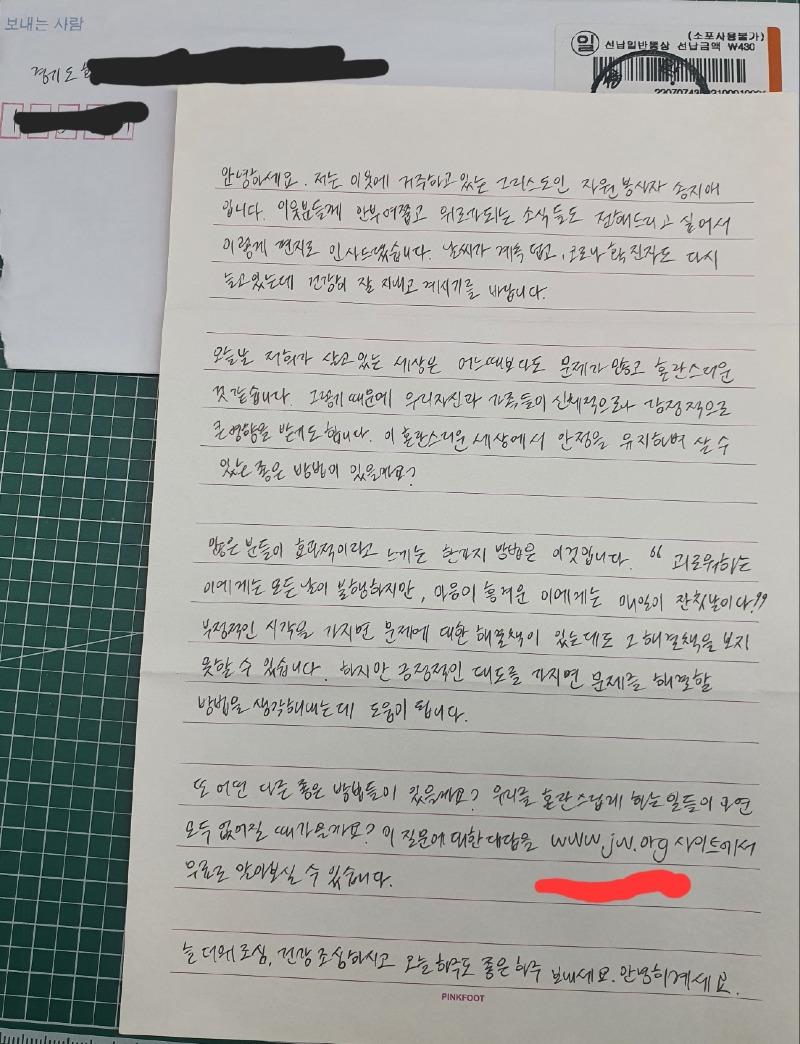 보내는 사람
경기도
(소포사용불가)
일 선납일반통상 선납금액 ₩430
안녕하세요. 저는 이웃에 거주하고 있는 그리스도인 자원봉사자 송지애
입니다. 이웃분들께 안부여쭙고 위로가되는 소식들도 전해드리고 싶어서
이렇게 편지로 인사드렸습니다. 날씨가 계속 덥고, 코로나 확진자도 다시
늘고있는데 건강히 잘 지내고 계시기를 바랍니다.
오늘날 저희가 살고있는 세상은 어느때보다도 문제가 많고 혼란스러운
것같습니다. 그렇기 때문에 우리자신과 가족들이 신체적으로나 감정적으로
큰영향을 받기도합니다. 이 혼란스러운 세상에서 안정을 유지하며 살 수
있는 좋은 방법이 있을까요?
많은 분들이 효과적이라고 느끼는 한가지 방법은 이것입니다. “괴로워하는
이에게는 모든날이 불행하지만, 마음이 즐거운 이에게는 매일이 잔칫날이다.”
부정적인 시각을 가지면 문제에 대한 해결책이 있는데도 그 해결책을 보지
못할 수 있습니다. 하지만 긍정적인 태도를 가지면 문제를 해결할
방법을 생각해내는데 도움이 됩니다.
또 어떤 다른 좋은 방법들이 있을까요? 우리를 혼란스럽게 하는일들이 과연
모두 없어질 때가올까요? 이 질문에 대한대답을 www.jw.org 사이트에서
무료로 알아보실 수 있습니다.
늘 더위조심, 건강조심하시고 오늘하루도 좋은하루 보내세요. 안녕히계세요.
PINKFOOT